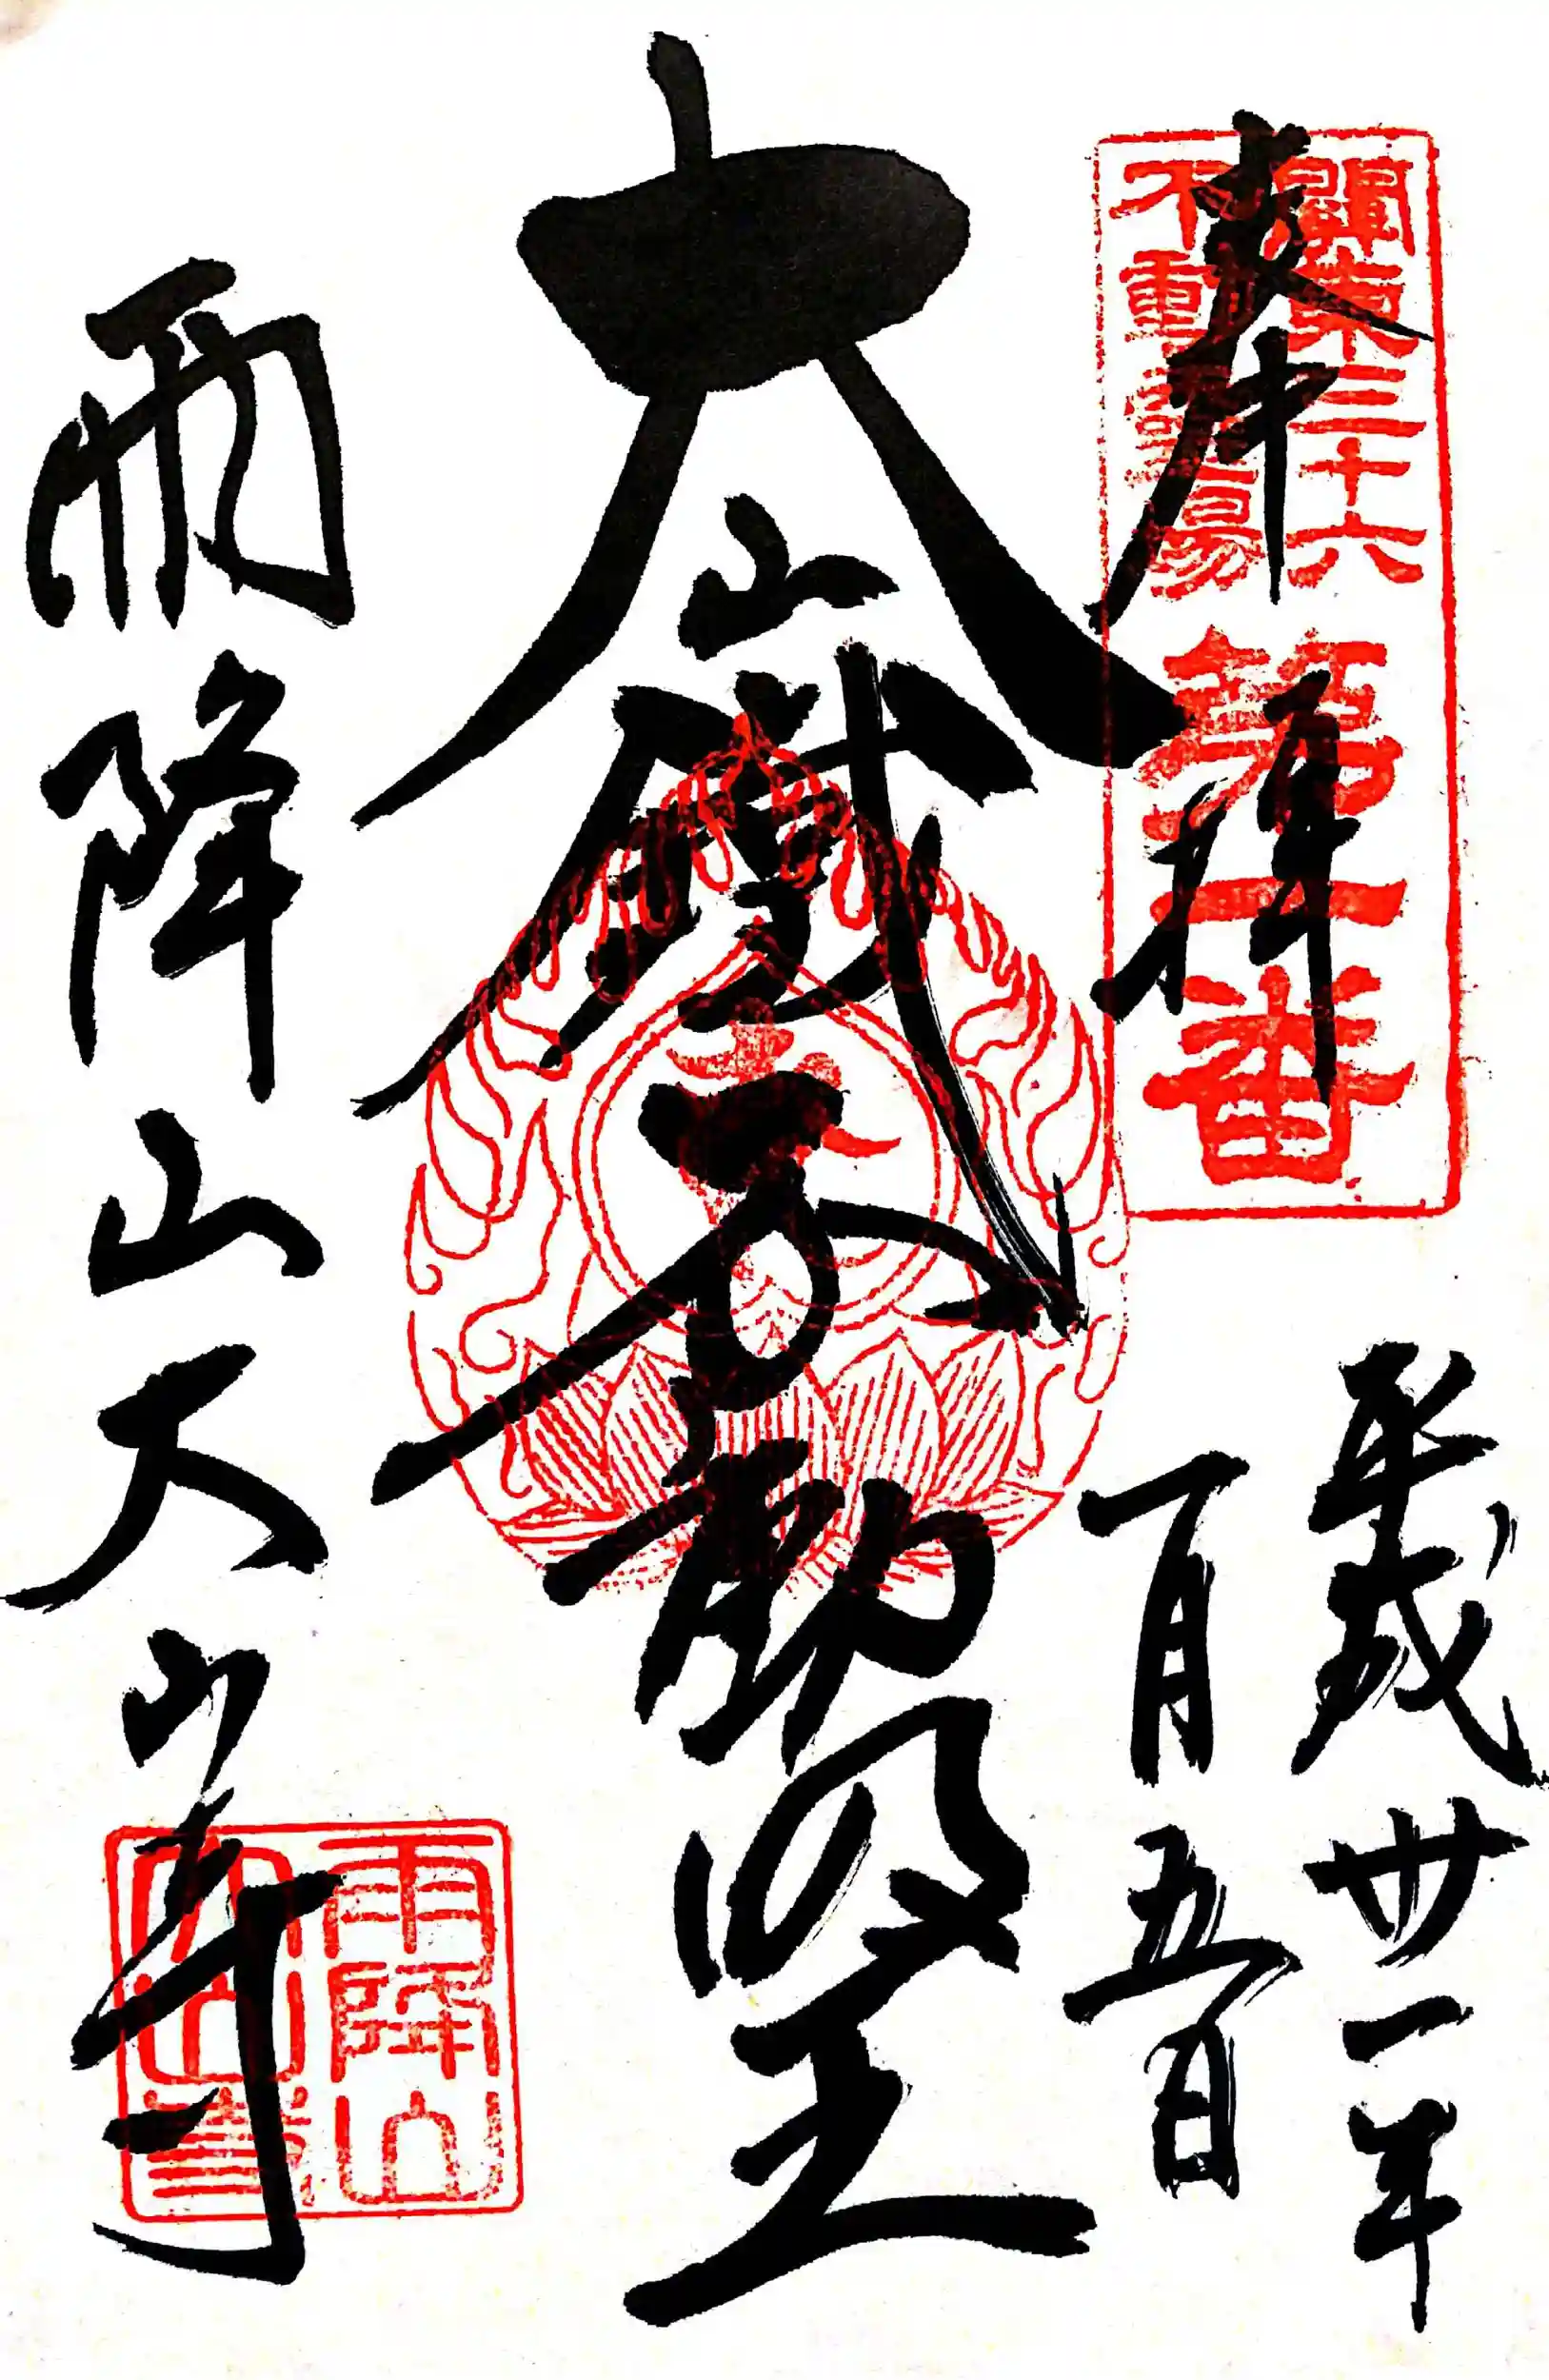 奉拝
關東三十六
不動靈場
第一番
平成卅一年
一月五日
大山鐵不動明王
雨降山大山寺
雨降山
大山寺